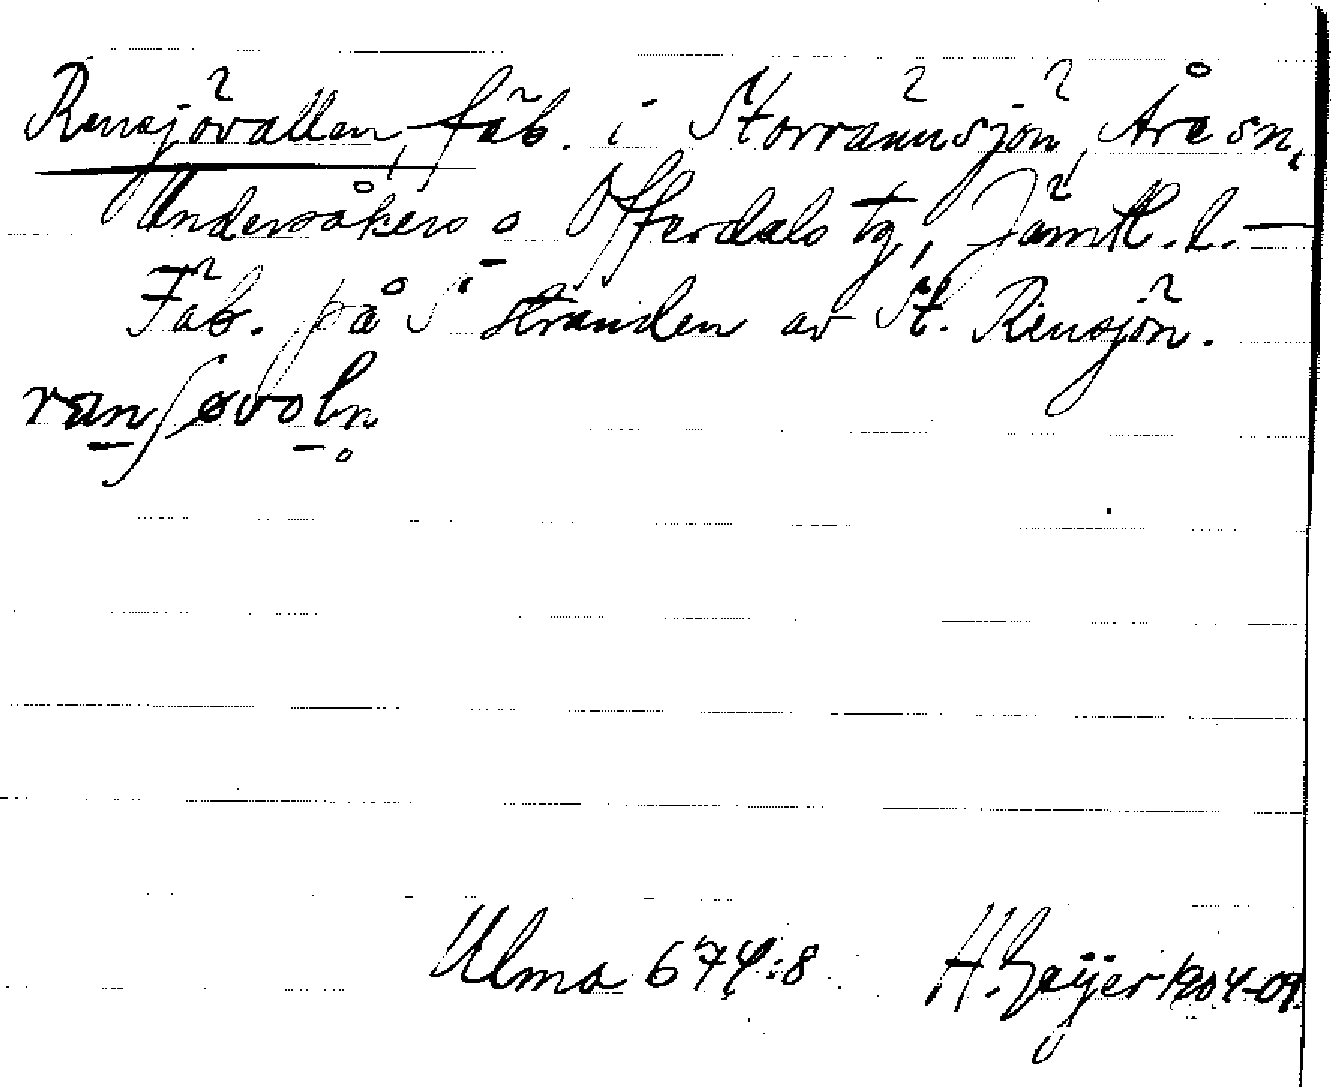 Rensjövallen, fäb. i Storrännsjön, Åre sn,
Undersåkers o Offerdals tg, Jämtl. l. —
Fäb. på S stranden av St. Rensjön.
ranʃøvoln̥
Ulma 674:8 H. Geijer 1904-09